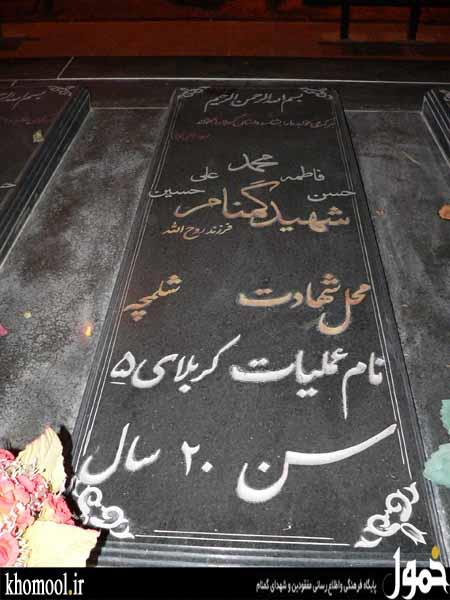 بسم الله الرحمن الرحیم
محمد
فاطمه علی
حسن حسین
شهید گمنام
فرزند روح الله
محل شهادت شلمچه
نام عملیات کربلای ۵
سن ۲۰ سال
khomool.ir
پایگاه فرهنگی واطلاع رسانی مفقودین و شهدای گمنام
خمول
khomool.ir